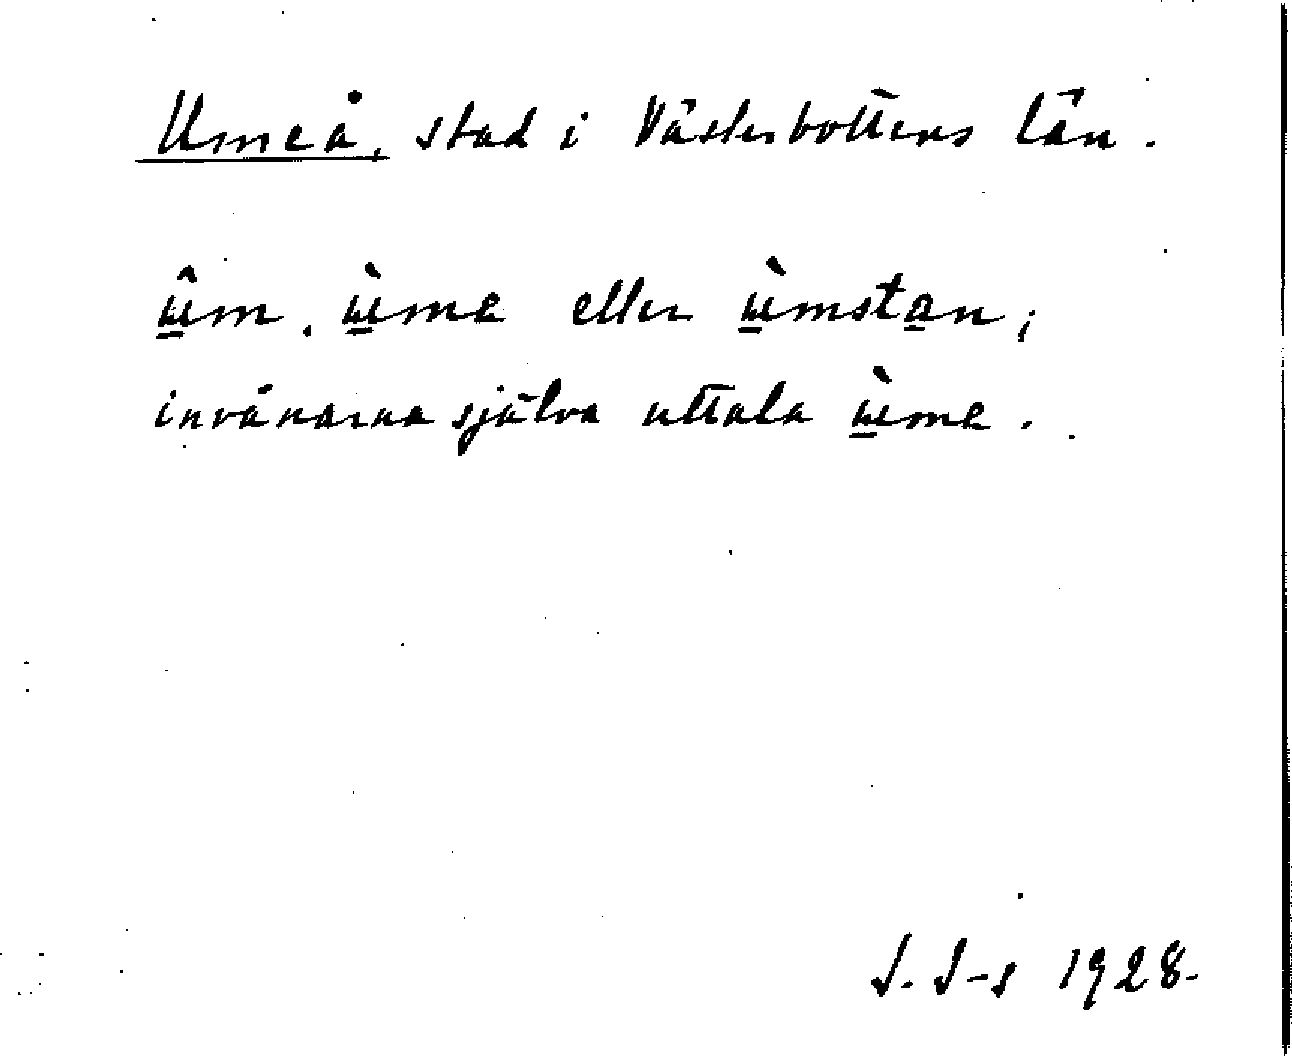 Umeå, stad i Västerbottens län.
ɯ̲̂m, ɯ̲̀me eller ɯ̲̀msta̲n;
invånarna själva uttala ɯ̲̀me.
J. J-s 1928.